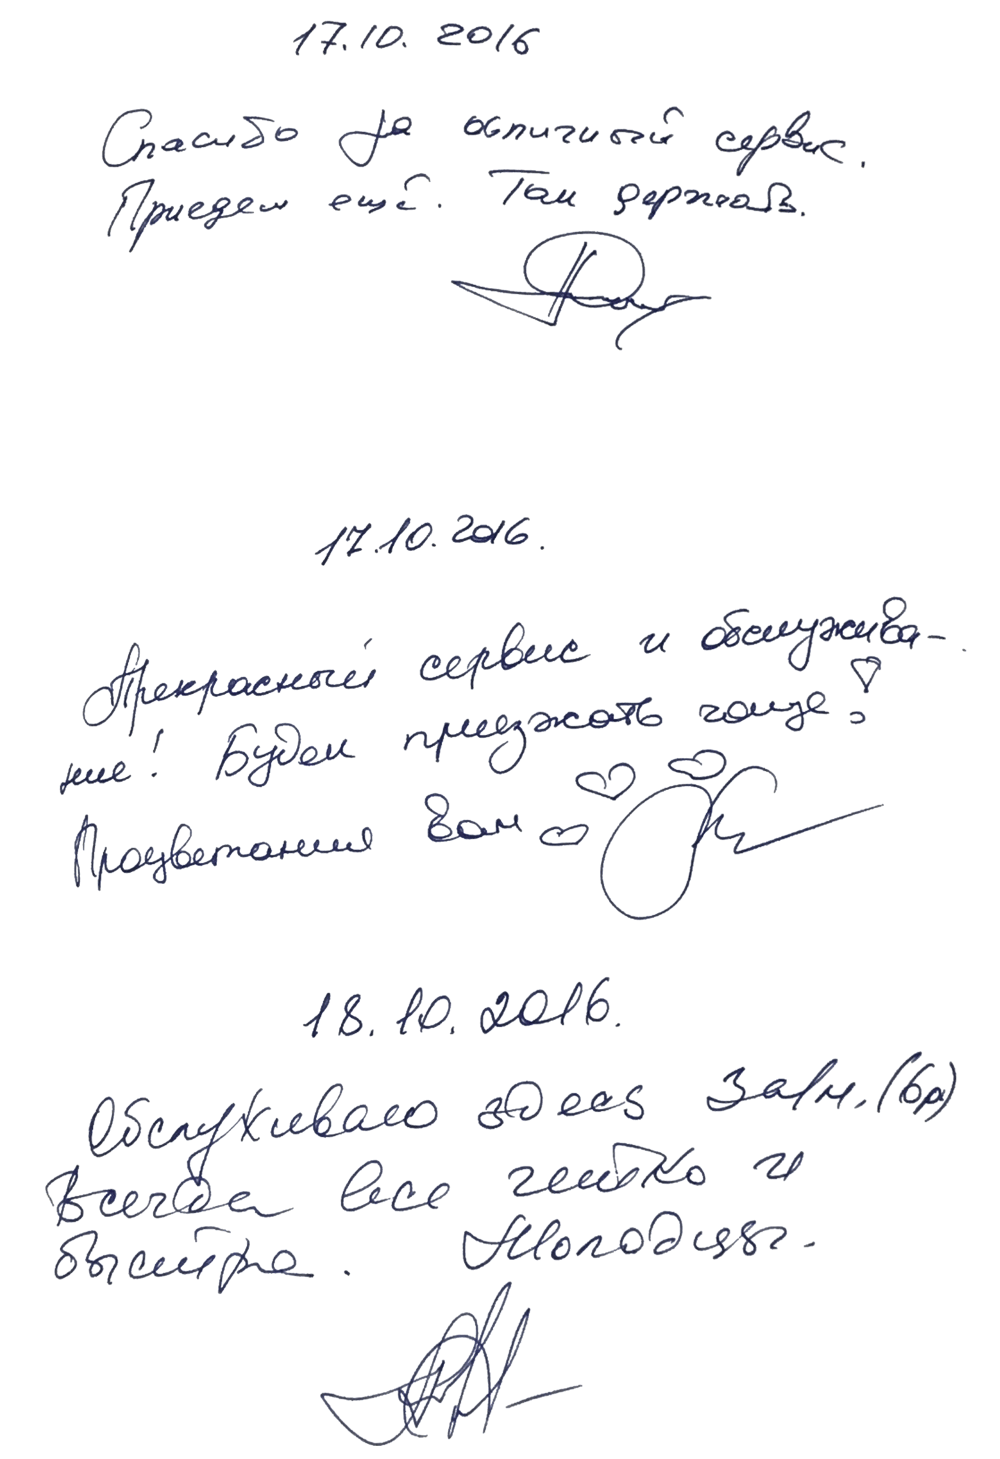 17.10.2016
Спасибо за отличный сервис.
Приедем ещё. Так держать.
17.10.2016.
Прекрасный сервис и обслужива-
ние! Будем приезжать чаще!
Процветания Вам
18.10.2016.
Обслуживаю здесь 3 а/м. (бр)
Всегда все четко и
быстро. Молодцы.